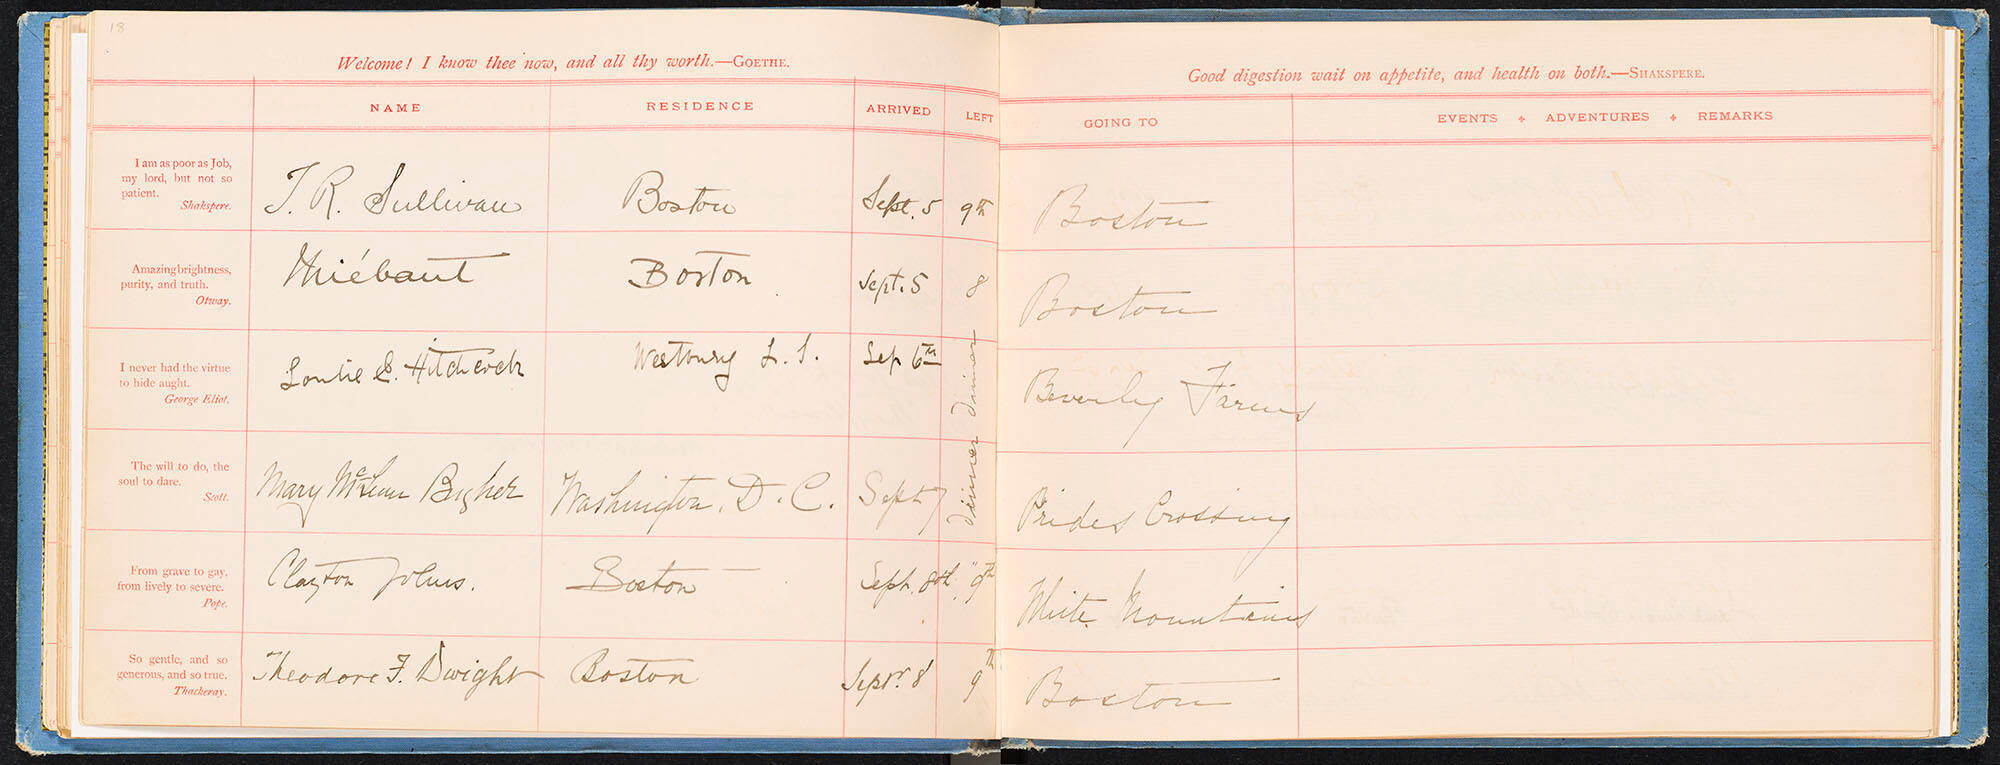 18
Welcome! I know thee now, and all thy worth.—GOETHE.
NAME RESIDENCE ARRIVED LEFT
I am as poor as Job,
my lord, but not so
patient.
Shakspere.
T. R. Sullivan Boston Sept. 5 9th
Amazing brightness,
purity, and truth.
Otway.
Thiébaut Boston Sept. 5 8
I never had the virtue
to hide aught.
George Eliot.
Loulie S. Hitchcock Westbury L. I. Sep 6th dinner
The will to do, the
soul to dare.
Scott.
Mary McLean Washington. D. C. Sept 7 dinner
From grave to gay,
from lively to severe.
Pope.
Clayton Johns. Boston Sept. 8th. 9th
So gentle, and so
generous, and so true.
Thackeray.
Theodore F. Dwight Boston Sept. 8 9th
Good digestion wait on appetite, and health on both.—SHAKSPERE.
GOING TO EVENTS ADVENTURES REMARKS
Boston
Boston
Beverly Farms
Prides Crossing
White Mountains
Boston